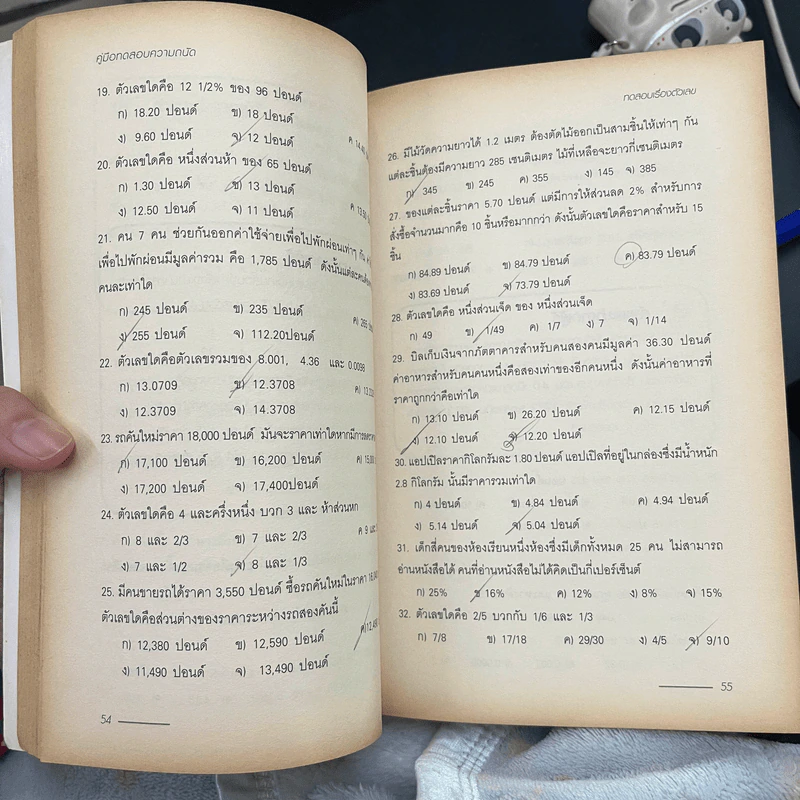 คู่มือทดสอบความถนัด
19. ตัวเลขใดคือ 12 1/2% ของ 96 ปอนด์
ก) 18.20 ปอนด์ ข) 18 ปอนด์ ค 14.40
ง) 9.60 ปอนด์ จ) 12 ปอนด์
20. ตัวเลขใดคือ หนึ่งส่วนห้า ของ 65 ปอนด์
ก) 1.30 ปอนด์ ข) 13 ปอนด์ ค 13.50
ง) 12.50 ปอนด์ จ) 11 ปอนด์
21. คน 7 คน ช่วยกันออกค่าใช้จ่ายเพื่อไปพักผ่อนเท่าๆ กัน
เพื่อไปพักผ่อนมีมูลค่ารวม คือ 1,785 ปอนด์ ดังนั้นแต่ละคน
คนละเท่าใด
ก) 245 ปอนด์ ข) 235 ปอนด์ ค) 265
ง) 255 ปอนด์ จ) 112.20ปอนด์
22. ตัวเลขใดคือตัวเลขรวมของ 8.001, 4.36 และ 0.0098
ก) 13.0709 ข) 12.3708
ง) 12.3709 จ) 14.3708
23. รถคันใหม่ราคา 18,000 ปอนด์ มันจะราคาเท่าใดหากมีการลดราคา
ก) 17,100 ปอนด์ ข) 16,200 ปอนด์
ง) 17,200 ปอนด์ จ) 17,400ปอนด์
24. ตัวเลขใดคือ 4 และครึ่งหนึ่ง บวก 3 และ ห้าส่วนหก
ก) 8 และ 2/3 ข) 7 และ 2/3 ค 9 และ
ง) 7 และ 1/2 จ) 8 และ 1/3
25. มีคนขายรถได้ราคา 3,550 ปอนด์ ซื้อรถคันใหม่ในราคา
ตัวเลขใดคือส่วนต่างของราคาระหว่างรถสองคันนี้
ก) 12,380 ปอนด์ ข) 12,590 ปอนด์
ง) 11,490 ปอนด์ จ) 13,490 ปอนด์
54
ทดสอบเรื่องตัวเลข
26. มีไม้วัดความยาวได้ 1.2 เมตร ต้องตัดไม้ออกเป็นสามชิ้นให้เท่าๆ กัน
แต่ละชิ้นต้องมีความยาว 285 เซนติเมตร ไม้ที่เหลือจะยาวกี่เซนติเมตร
ก) 345 ข) 245 ค) 355 ง) 145 จ) 385
27. ของแต่ละชิ้นราคา 5.70 ปอนด์ แต่มีการให้ส่วนลด 2% สำหรับการ
สั่งซื้อจำนวนมากคือ 10 ชิ้นหรือมากกว่า ดังนั้นตัวเลขใดคือราคาสำหรับ 15
ชิ้น
ก) 84.89 ปอนด์ ข) 84.79 ปอนด์ ค) 83.79 ปอนด์
ง) 83.69 ปอนด์ จ) 73.79 ปอนด์
28. ตัวเลขใดคือ หนึ่งส่วนเจ็ด ของ หนึ่งส่วนเจ็ด
ก) 49 ข) 1/49 ค) 1/7 ง) 7 จ) 1/14
29. บิลเก็บเงินจากภัตตาคารสำหรับคนสองคนมีมูลค่า 36.30 ปอนด์
ค่าอาหารสำหรับคนคนหนึ่งคือสองเท่าของอีกคนหนึ่ง ดังนั้นค่าอาหารที่
ราคาถูกกว่าคือเท่าใด
ก) 13.10 ปอนด์ ข) 26.20 ปอนด์ ค) 12.15 ปอนด์
ง) 12.10 ปอนด์ จ) 12.20 ปอนด์
30. แอปเปิลราคากิโลกรัมละ 1.80 ปอนด์ แอปเปิลที่อยู่ในกล่องซึ่งมีน้ำหนัก
2.8 กิโลกรัม นั้นมีราคารวมเท่าใด
ก) 4 ปอนด์ ข) 4.84 ปอนด์ ค) 4.94 ปอนด์
ง) 5.14 ปอนด์ จ) 5.04 ปอนด์
31. เด็กสี่คนของห้องเรียนหนึ่งห้องซึ่งมีเด็กทั้งหมด 25 คน ไม่สามารถ
อ่านหนังสือได้ คนที่อ่านหนังสือไม่ได้คิดเป็นกี่เปอร์เซ็นต์
ก) 25% ข 16% ค) 12% ง) 8% จ) 15%
32. ตัวเลขใดคือ 2/5 บวกกับ 1/6 และ 1/3
ก) 7/8 ข) 17/18 ค) 29/30 ง) 4/5 จ) 9/10
55